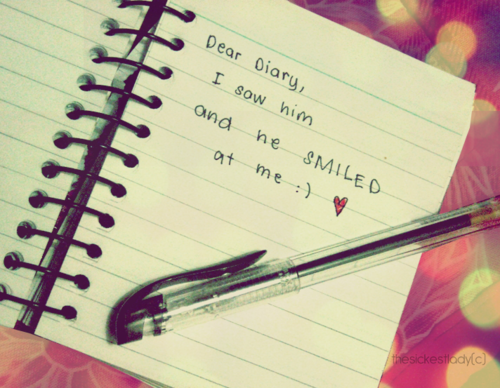 Dear Diary,
I saw him
and he SMILED
at me :) ♥
thesickestlady(c)